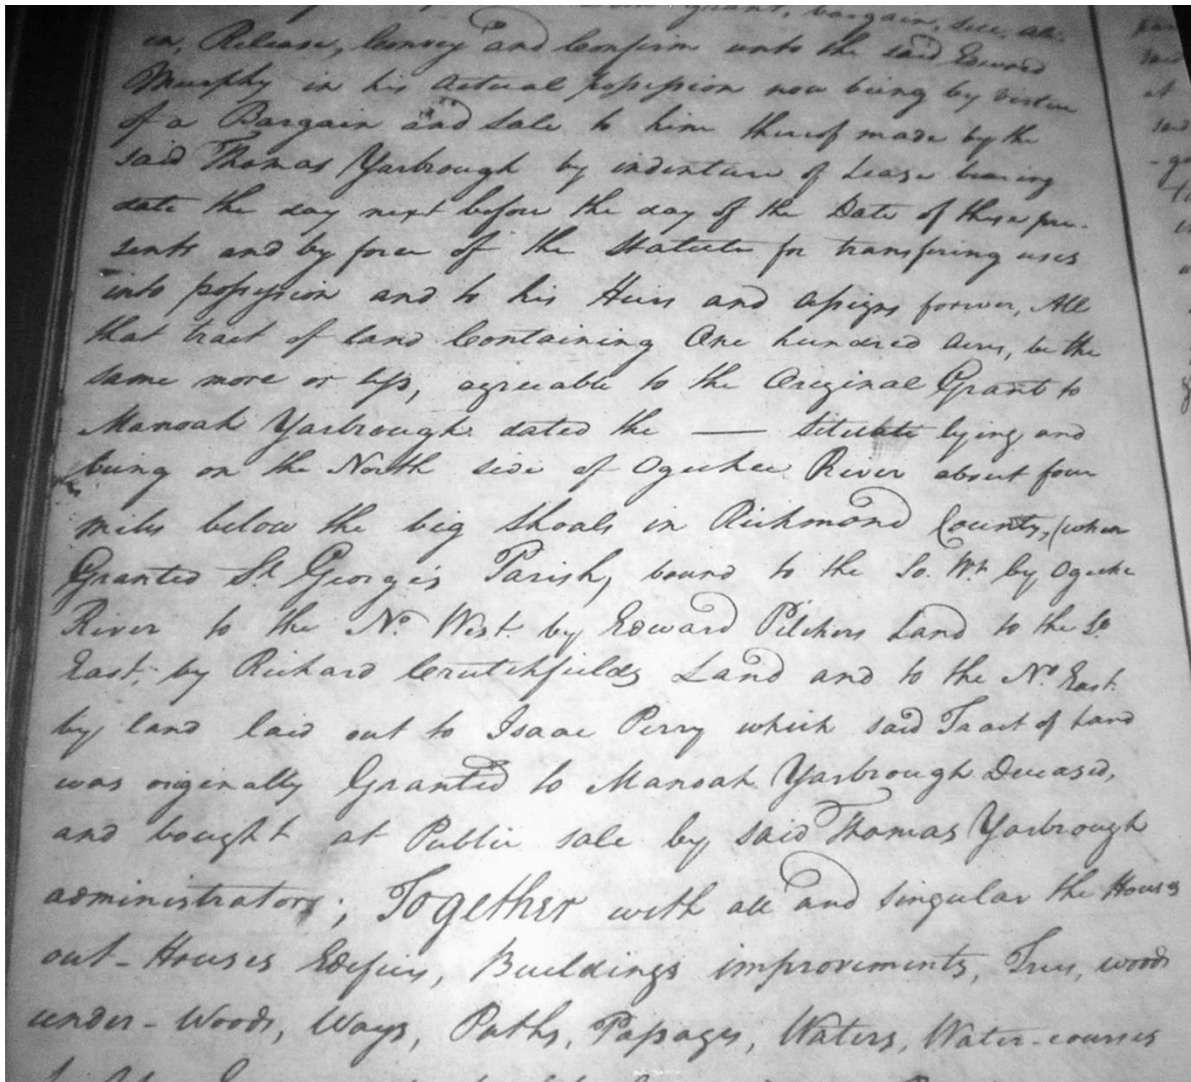 grant, bargain, sell, ali-
en, Release, Convey and Confirm unto the said Edward
Murphy in his actual possession now being by virtue
of a Bargain and Sale to him thereof made by the
said Thomas Yarbrough by indenture of Lease bearing
date the day next before the day of the Date of these pre-
sents and by force of the Statute for transfering uses
into possession and to his Heirs and assigns forever, All
that tract of land Containing One hundred Acres, be the
same more or less, agreeable to the Original Grant to
Manoah Yarbrough dated the — Situate lying and
being on the North side of Ogechee River about four
miles below the big Shoals in Richmond County, (when
Granted St. George's Parish, bound to the So. Wt. by Ogeche
River to the No. West by Edward Pilchers Land to the So.
East, by Richard Crutchfields Land and to the No. East
by land laid out to Isaac Perry which said Tract of Land
was originally Granted to Manoah Yarbrough Deceased,
and bought at Public sale by said Thomas Yarbrough
administrator; Together with all and Singular the Houses
out-Houses Edifices, Buildings improvements, Trees, woods
under-Woods, Ways, Paths, Passages, Waters, Water-courses